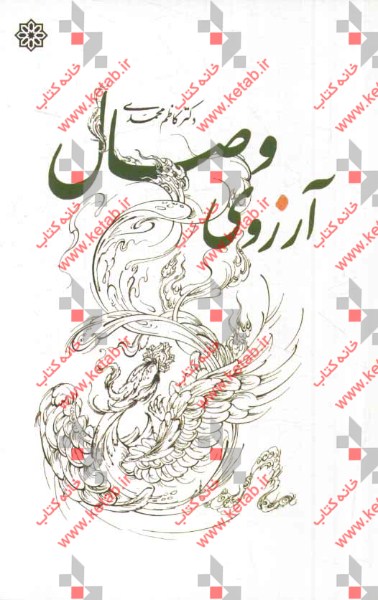 دکتر کاظم محمدی
آرزوی وصال
خانه کتاب
www.ketab.ir